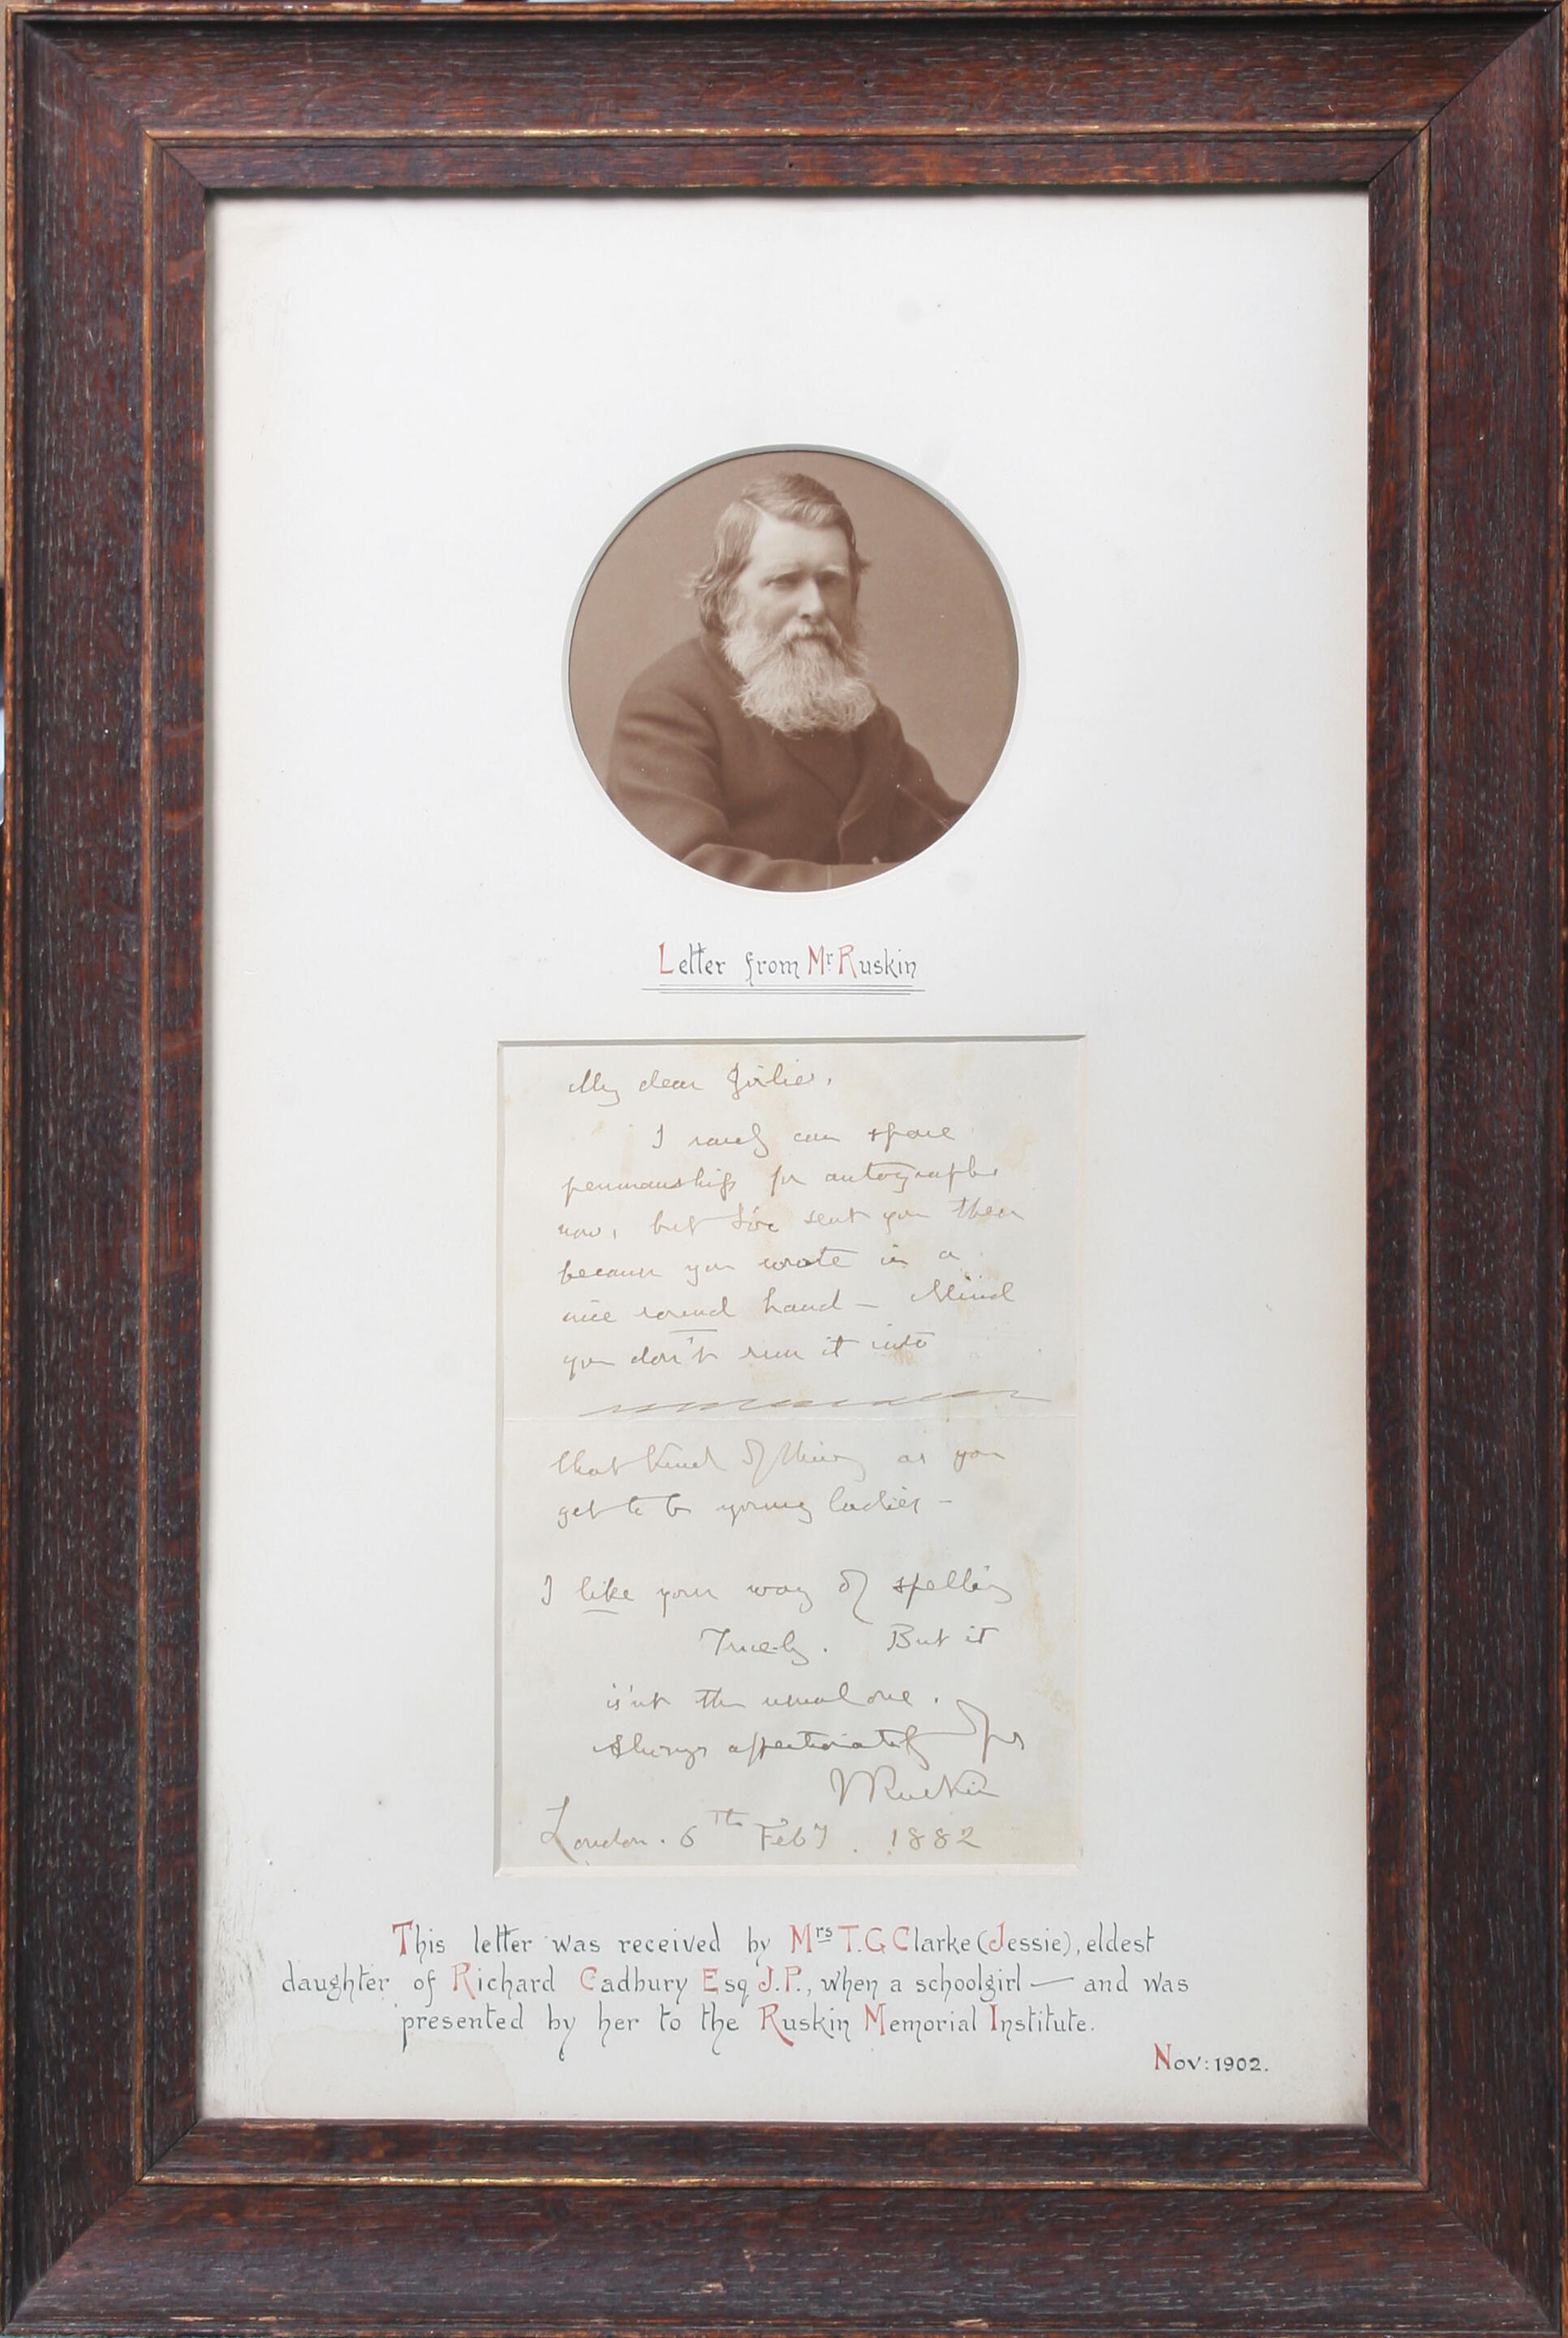 Letter from Mr Ruskin
My dear Girlie,
I rarely can spare
penmanship for autographs
now, but I've sent you them
because you wrote in a
nice round hand — Mind
you don't run it into
that kind of thing as you
get to be young ladies —
I like your way of spelling
Truely. But it
is'nt the usual one.
Always affectionately yrs
JRuskin
London. 6th Feby. 1882
This letter was received by Mrs T.G Clarke (Jessie), eldest
daughter of Richard Cadbury Esq J.P., when a schoolgirl — and was
presented by her to the Ruskin Memorial Institute.
Nov: 1902.